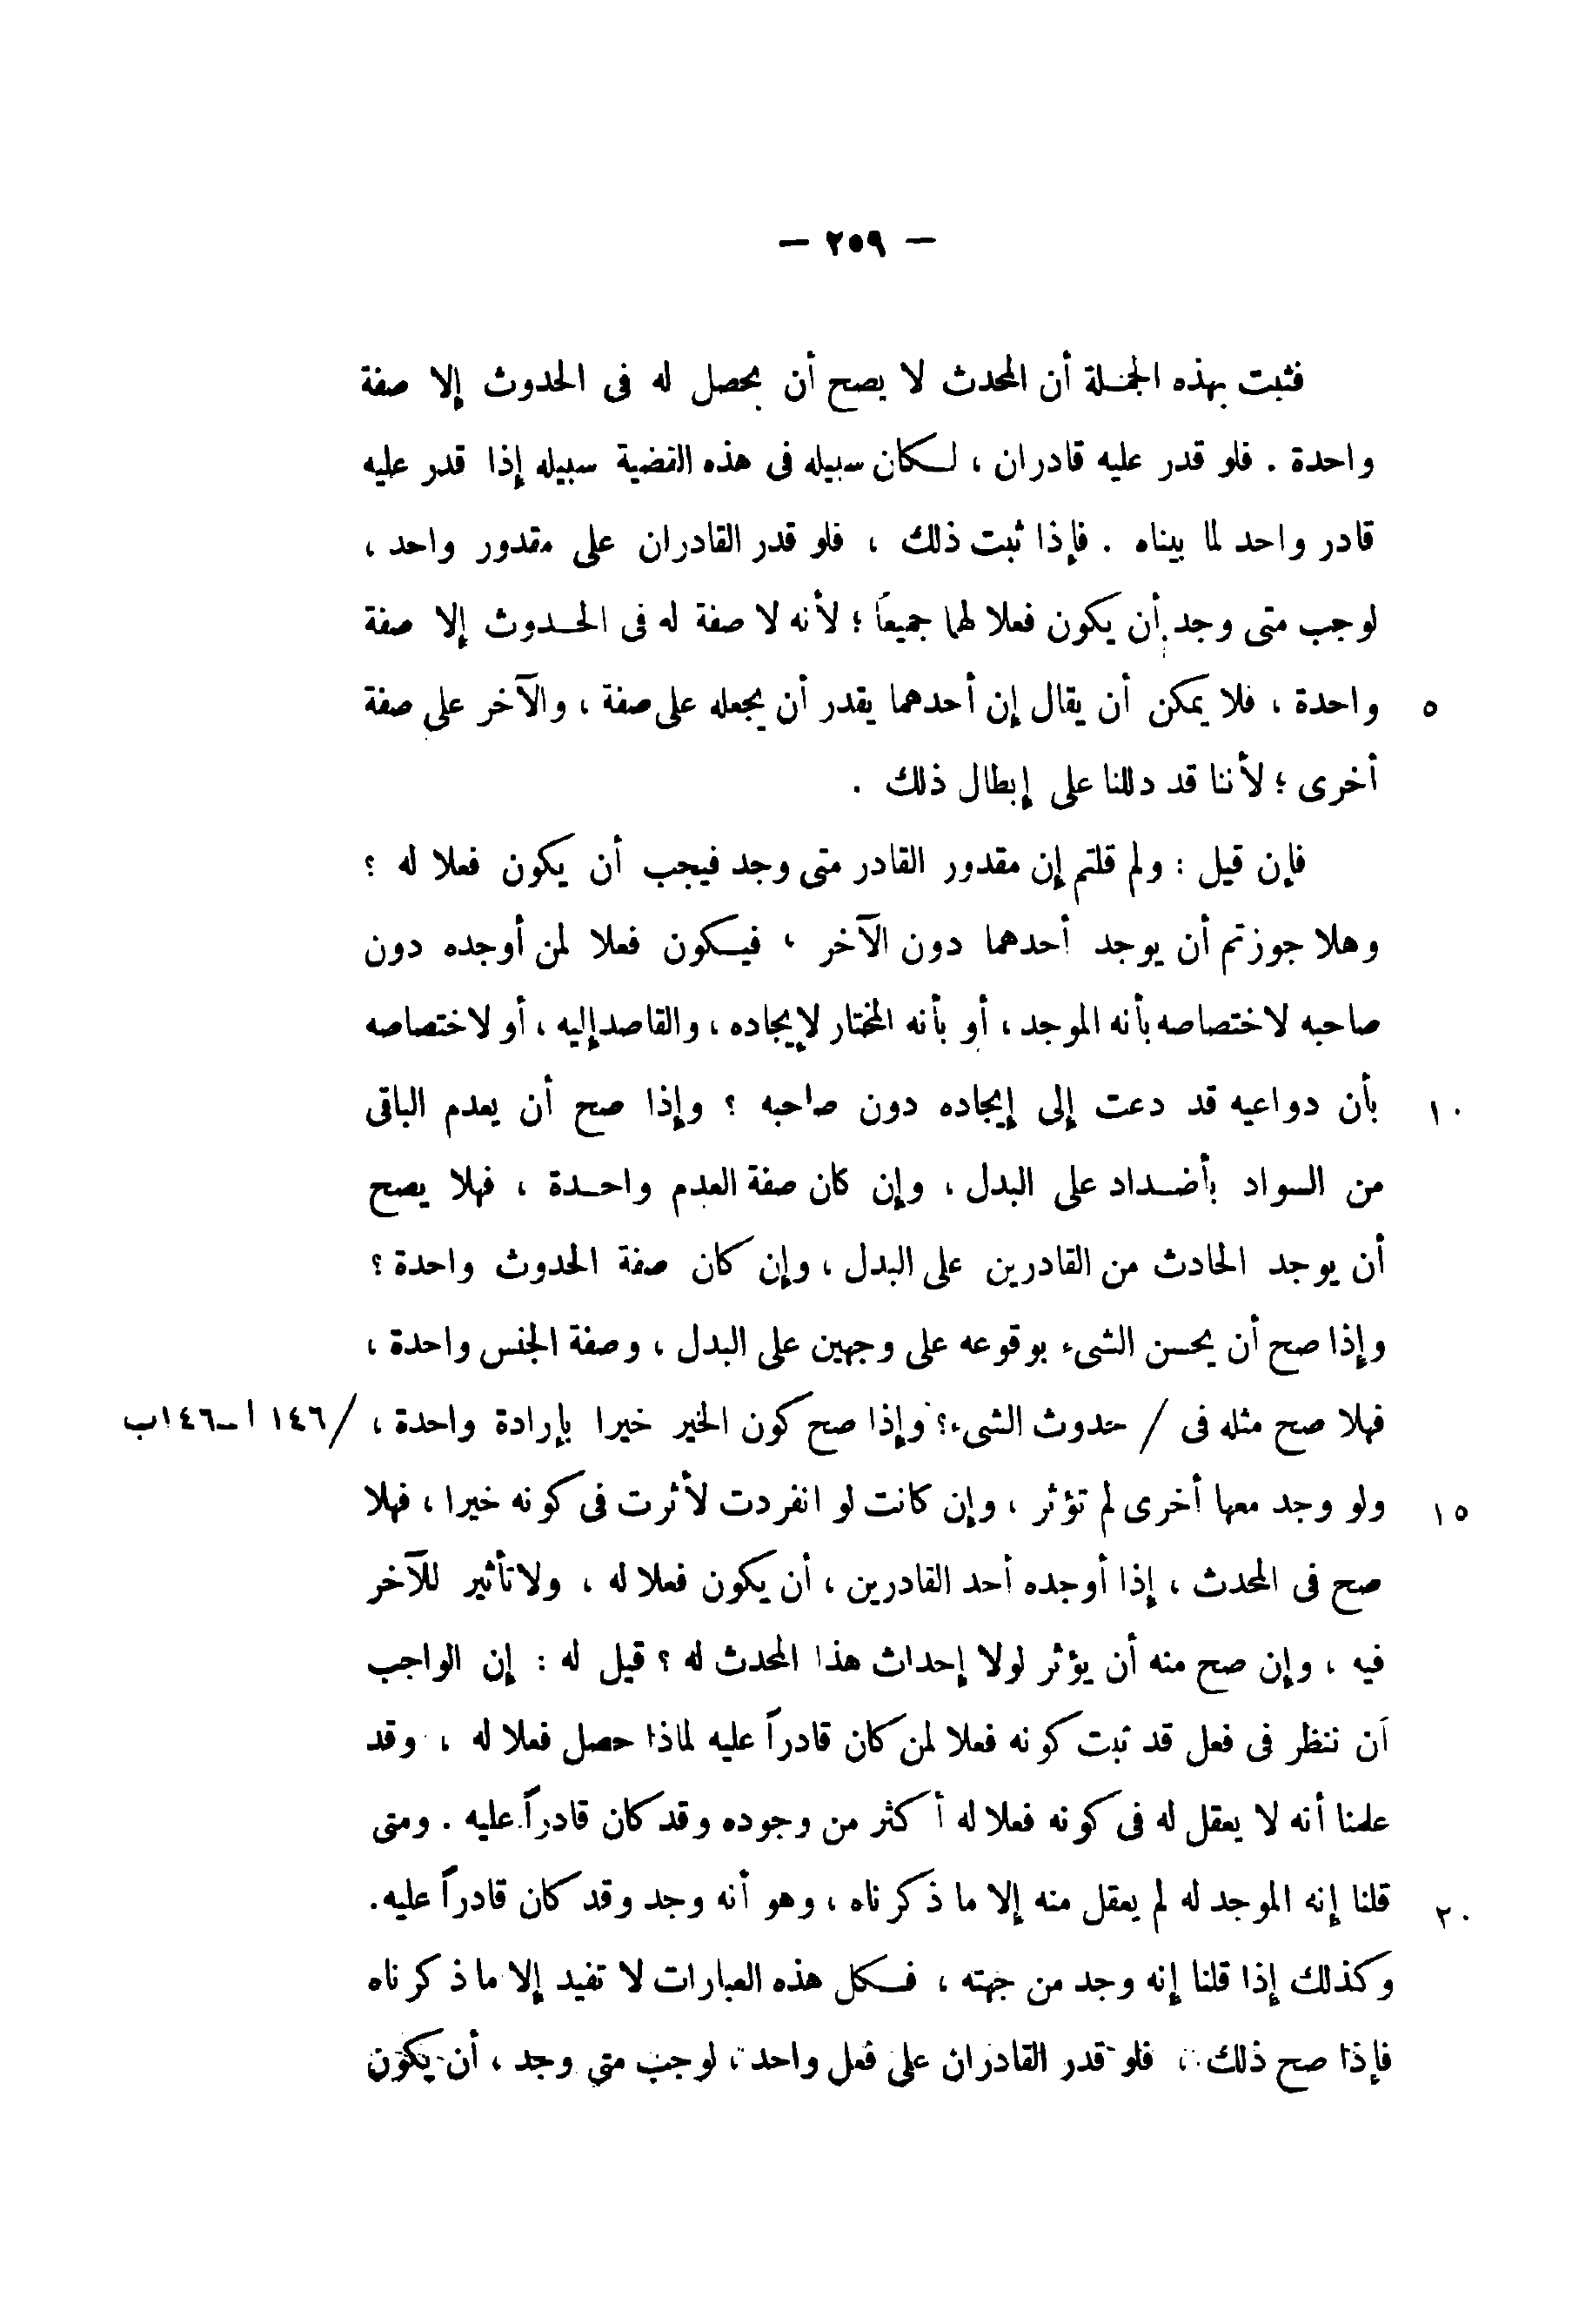 — ٢٥٩ —
فثبت بهذه الجملة أن المحدث لا يصح أن يحصل له فى الحدوث إلا صفة
واحدة . فلو قدر عليه قادران ، لكان سبيله فى هذه القضية سبيله إذا قدر عليه
قادر واحد لما بيناه . فإذا ثبت ذلك ، فلو قدر القادران على مقدور واحد ،
لوجب متى وجد أن يكون فعلا لهما جميعاً ؛ لأنه لا صفة له فى الحدوث إلا صفة
٥ واحدة ، فلا يمكن أن يقال إن أحدهما يقدر أن يجعله على صفة ، والآخر على صفة
أخرى ؛ لأننا قد دللنا على إبطال ذلك .
فإن قيل : ولم قلتم إن مقدور القادر متى وجد فيجب أن يكون فعلا له ؟
وهلا جوزتم أن يوجد أحدهما دون الآخر ، فيكون فعلا لمن أوجده دون
صاحبه لاختصاصه بأنه الموجد ، أو بأنه المختار لإيجاده ، والقاصد إليه ، أو لاختصاصه
١٠ بأن دواعيه قد دعت إلى إيجاده دون صاحبه ؟ وإذا صح أن يعدم الباقى
من السواد بأضداد على البدل ، وإن كان صفة العدم واحدة ، فهلا يصح
أن يوجد الحادث من القادرين على البدل ، وإن كان صفة الحدوث واحدة ؟
وإذا صح أن يحسن الشىء بوقوعه على وجهين على البدل ، وصفة الجنس واحدة ،
فهلا صح مثله فى / حدوث الشىء؟ وإذا صح كون الخير خيرا بإرادة واحدة ، /١٤٦ ا ــ ١٤٦ب
١٥ ولو وجد معها أخرى لم تؤثر ، وإن كانت لو انفردت لأثرت فى كونه خيرا ، فهلا
صح فى المحدث ، إذا أوجده أحد القادرين ، أن يكون فعلا له ، ولا تأثير للآخر
فيه ، وإن صح منه أن يؤثر لولا إحداث هذا المحدث له ؟ قيل له : إن الواجب
أن ننظر فى فعل قد ثبت كونه فعلا لمن كان قادراً عليه لماذا حصل فعلا له ، وقد
علمنا أنه لا يعقل له فى كونه فعلا له أكثر من وجوده وقد كان قادراً عليه . ومتى
٢٠ قلنا إنه الموجد له لم يعقل منه إلا ما ذكرناه ، وهو أنه وجد وقد كان قادراً عليه .
وكذلك إذا قلنا إنه وجد من جهته ، فكل هذه العبارات لا تفيد إلا ما ذكرناه
فإذا صح ذلك ، فلو قدر القادران على فعل واحد ، لوجب متى وجد ، أن يكون